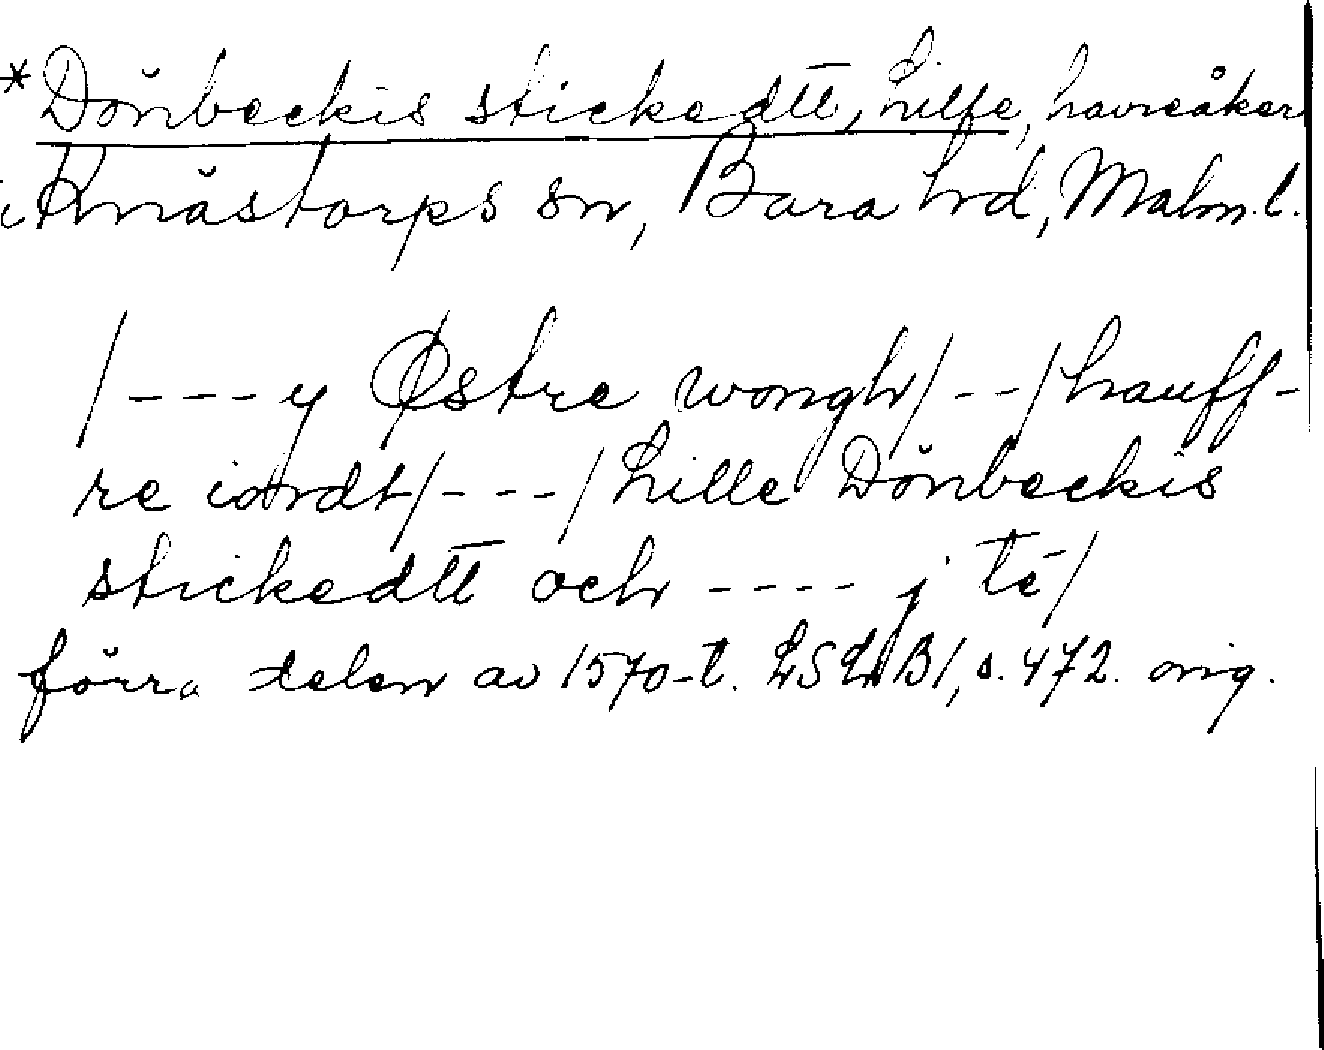 *Dönbeckis stickedtt, Lille, havreåker
i Knästorps sn, Bara hd, Malm. l.
/---y Østre wongh/--/hauff-
re iordt/---/Lille Dönbeckis
stickedtt och ---- j té/
förra delen av 1570-t. LSLB1, s. 472. orig.